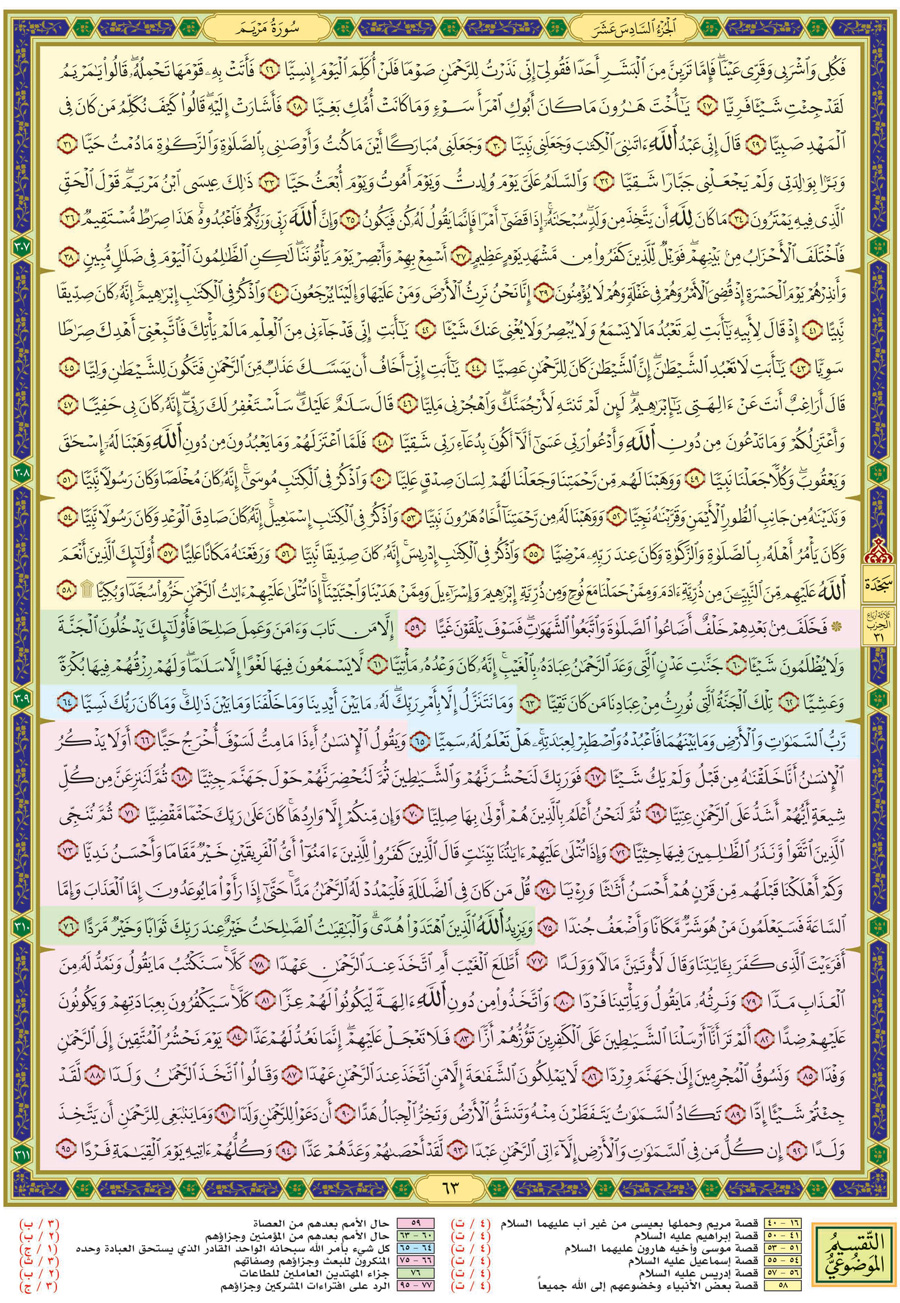 الجُزْءُ السَّادِسَ عَشَرَ
سُورَةُ مَرْيَمَ
فَكُلِى وَٱشْرَبِى وَقَرِّى عَيْنًا ۖ فَإِمَّا تَرَيِنَّ مِنَ ٱلْبَشَرِ أَحَدًا فَقُولِىٓ إِنِّى نَذَرْتُ لِلرَّحْمَٰنِ صَوْمًا فَلَنْ أُكَلِّمَ ٱلْيَوْمَ إِنسِيًّا ٢٦ فَأَتَتْ بِهِۦ قَوْمَهَا تَحْمِلُهُۥ ۖ قَالُوا۟ يَٰمَرْيَمُ
لَقَدْ جِئْتِ شَيْـًٔا فَرِيًّا ٢٧ يَٰٓأُخْتَ هَٰرُونَ مَا كَانَ أَبُوكِ ٱمْرَأَ سَوْءٍ وَمَا كَانَتْ أُمُّكِ بَغِيًّا ٢٨ فَأَشَارَتْ إِلَيْهِ ۖ قَالُوا۟ كَيْفَ نُكَلِّمُ مَن كَانَ فِى
ٱلْمَهْدِ صَبِيًّا ٢٩ قَالَ إِنِّى عَبْدُ ٱللَّهِ ءَاتَىٰنِىَ ٱلْكِتَٰبَ وَجَعَلَنِى نَبِيًّا ٣٠ وَجَعَلَنِى مُبَارَكًا أَيْنَ مَا كُنتُ وَأَوْصَٰنِى بِٱلصَّلَوٰةِ وَٱلزَّكَوٰةِ مَا دُمْتُ حَيًّا ٣١
وَبَرًّۢا بِوَٰلِدَتِى وَلَمْ يَجْعَلْنِى جَبَّارًا شَقِيًّا ٣٢ وَٱلسَّلَٰمُ عَلَىَّ يَوْمَ وُلِدتُّ وَيَوْمَ أَمُوتُ وَيَوْمَ أُبْعَثُ حَيًّا ٣٣ ذَٰلِكَ عِيسَى ٱبْنُ مَرْيَمَ ۚ قَوْلَ ٱلْحَقِّ
ٱلَّذِى فِيهِ يَمْتَرُونَ ٣٤ مَا كَانَ لِلَّهِ أَن يَتَّخِذَ مِن وَلَدٍ ۖ سُبْحَٰنَهُۥٓ ۚ إِذَا قَضَىٰٓ أَمْرًا فَإِنَّمَا يَقُولُ لَهُۥ كُن فَيَكُونُ ٣٥ وَإِنَّ ٱللَّهَ رَبِّى وَرَبُّكُمْ فَٱعْبُدُوهُ ۚ هَٰذَا صِرَٰطٌ مُّسْتَقِيمٌ ٣٦
فَٱخْتَلَفَ ٱلْأَحْزَابُ مِنۢ بَيْنِهِمْ ۖ فَوَيْلٌ لِّلَّذِينَ كَفَرُوا۟ مِن مَّشْهَدِ يَوْمٍ عَظِيمٍ ٣٧ أَسْمِعْ بِهِمْ وَأَبْصِرْ يَوْمَ يَأْتُونَنَا ۖ لَٰكِنِ ٱلظَّٰلِمُونَ ٱلْيَوْمَ فِى ضَلَٰلٍ مُّبِينٍ ٣٨
وَأَنذِرْهُمْ يَوْمَ ٱلْحَسْرَةِ إِذْ قُضِىَ ٱلْأَمْرُ وَهُمْ فِى غَفْلَةٍ وَهُمْ لَا يُؤْمِنُونَ ٣٩ إِنَّا نَحْنُ نَرِثُ ٱلْأَرْضَ وَمَنْ عَلَيْهَا وَإِلَيْنَا يُرْجَعُونَ ٤٠ وَٱذْكُرْ فِى ٱلْكِتَٰبِ إِبْرَٰهِيمَ ۚ إِنَّهُۥ كَانَ صِدِّيقًا
نَّبِيًّا ٤١ إِذْ قَالَ لِأَبِيهِ يَٰٓأَبَتِ لِمَ تَعْبُدُ مَا لَا يَسْمَعُ وَلَا يُبْصِرُ وَلَا يُغْنِى عَنكَ شَيْـًٔا ٤٢ يَٰٓأَبَتِ إِنِّى قَدْ جَآءَنِى مِنَ ٱلْعِلْمِ مَا لَمْ يَأْتِكَ فَٱتَّبِعْنِىٓ أَهْدِكَ صِرَٰطًا
سَوِيًّا ٤٣ يَٰٓأَبَتِ لَا تَعْبُدِ ٱلشَّيْطَٰنَ ۖ إِنَّ ٱلشَّيْطَٰنَ كَانَ لِلرَّحْمَٰنِ عَصِيًّا ٤٤ يَٰٓأَبَتِ إِنِّىٓ أَخَافُ أَن يَمَسَّكَ عَذَابٌ مِّنَ ٱلرَّحْمَٰنِ فَتَكُونَ لِلشَّيْطَٰنِ وَلِيًّا ٤٥
قَالَ أَرَاغِبٌ أَنتَ عَنْ ءَالِهَتِى يَٰٓإِبْرَٰهِيمُ ۖ لَئِن لَّمْ تَنتَهِ لَأَرْجُمَنَّكَ ۖ وَٱهْجُرْنِى مَلِيًّا ٤٦ قَالَ سَلَٰمٌ عَلَيْكَ ۖ سَأَسْتَغْفِرُ لَكَ رَبِّىٓ ۖ إِنَّهُۥ كَانَ بِى حَفِيًّا ٤٧
وَأَعْتَزِلُكُمْ وَمَا تَدْعُونَ مِن دُونِ ٱللَّهِ وَأَدْعُوا۟ رَبِّى عَسَىٰٓ أَلَّآ أَكُونَ بِدُعَآءِ رَبِّى شَقِيًّا ٤٨ فَلَمَّا ٱعْتَزَلَهُمْ وَمَا يَعْبُدُونَ مِن دُونِ ٱللَّهِ وَهَبْنَا لَهُۥٓ إِسْحَٰقَ
وَيَعْقُوبَ ۖ وَكُلًّا جَعَلْنَا نَبِيًّا ٤٩ وَوَهَبْنَا لَهُم مِّن رَّحْمَتِنَا وَجَعَلْنَا لَهُمْ لِسَانَ صِدْقٍ عَلِيًّا ٥٠ وَٱذْكُرْ فِى ٱلْكِتَٰبِ مُوسَىٰٓ ۚ إِنَّهُۥ كَانَ مُخْلَصًا وَكَانَ رَسُولًا نَّبِيًّا ٥١
وَنَٰدَيْنَٰهُ مِن جَانِبِ ٱلطُّورِ ٱلْأَيْمَنِ وَقَرَّبْنَٰهُ نَجِيًّا ٥٢ وَوَهَبْنَا لَهُۥ مِن رَّحْمَتِنَآ أَخَاهُ هَٰرُونَ نَبِيًّا ٥٣ وَٱذْكُرْ فِى ٱلْكِتَٰبِ إِسْمَٰعِيلَ ۚ إِنَّهُۥ كَانَ صَادِقَ ٱلْوَعْدِ وَكَانَ رَسُولًا نَّبِيًّا ٥٤
وَكَانَ يَأْمُرُ أَهْلَهُۥ بِٱلصَّلَوٰةِ وَٱلزَّكَوٰةِ وَكَانَ عِندَ رَبِّهِۦ مَرْضِيًّا ٥٥ وَٱذْكُرْ فِى ٱلْكِتَٰبِ إِدْرِيسَ ۚ إِنَّهُۥ كَانَ صِدِّيقًا نَّبِيًّا ٥٦ وَرَفَعْنَٰهُ مَكَانًا عَلِيًّا ٥٧ أُو۟لَٰٓئِكَ ٱلَّذِينَ أَنْعَمَ
ٱللَّهُ عَلَيْهِم مِّنَ ٱلنَّبِيِّـۧنَ مِن ذُرِّيَّةِ ءَادَمَ وَمِمَّنْ حَمَلْنَا مَعَ نُوحٍ وَمِن ذُرِّيَّةِ إِبْرَٰهِيمَ وَإِسْرَٰٓءِيلَ وَمِمَّنْ هَدَيْنَا وَٱجْتَبَيْنَآ ۚ إِذَا تُتْلَىٰ عَلَيْهِمْ ءَايَٰتُ ٱلرَّحْمَٰنِ خَرُّوا۟ سُجَّدًا وَبُكِيًّا ۩ ٥٨
۞ فَخَلَفَ مِنۢ بَعْدِهِمْ خَلْفٌ أَضَاعُوا۟ ٱلصَّلَوٰةَ وَٱتَّبَعُوا۟ ٱلشَّهَوَٰتِ ۖ فَسَوْفَ يَلْقَوْنَ غَيًّا ٥٩ إِلَّا مَن تَابَ وَءَامَنَ وَعَمِلَ صَٰلِحًا فَأُو۟لَٰٓئِكَ يَدْخُلُونَ ٱلْجَنَّةَ
وَلَا يُظْلَمُونَ شَيْـًٔا ٦٠ جَنَّٰتِ عَدْنٍ ٱلَّتِى وَعَدَ ٱلرَّحْمَٰنُ عِبَادَهُۥ بِٱلْغَيْبِ ۚ إِنَّهُۥ كَانَ وَعْدُهُۥ مَأْتِيًّا ٦١ لَّا يَسْمَعُونَ فِيهَا لَغْوًا إِلَّا سَلَٰمًا ۖ وَلَهُمْ رِزْقُهُمْ فِيهَا بُكْرَةً
وَعَشِيًّا ٦٢ تِلْكَ ٱلْجَنَّةُ ٱلَّتِى نُورِثُ مِنْ عِبَادِنَا مَن كَانَ تَقِيًّا ٦٣ وَمَا نَتَنَزَّلُ إِلَّا بِأَمْرِ رَبِّكَ ۖ لَهُۥ مَا بَيْنَ أَيْدِينَا وَمَا خَلْفَنَا وَمَا بَيْنَ ذَٰلِكَ ۚ وَمَا كَانَ رَبُّكَ نَسِيًّا ٦٤
رَّبُّ ٱلسَّمَٰوَٰتِ وَٱلْأَرْضِ وَمَا بَيْنَهُمَا فَٱعْبُدْهُ وَٱصْطَبِرْ لِعِبَٰدَتِهِۦ ۚ هَلْ تَعْلَمُ لَهُۥ سَمِيًّا ٦٥ وَيَقُولُ ٱلْإِنسَٰنُ أَءِذَا مَا مِتُّ لَسَوْفَ أُخْرَجُ حَيًّا ٦٦ أَوَلَا يَذْكُرُ
ٱلْإِنسَٰنُ أَنَّا خَلَقْنَٰهُ مِن قَبْلُ وَلَمْ يَكُ شَيْـًٔا ٦٧ فَوَرَبِّكَ لَنَحْشُرَنَّهُمْ وَٱلشَّيَٰطِينَ ثُمَّ لَنُحْضِرَنَّهُمْ حَوْلَ جَهَنَّمَ جِثِيًّا ٦٨ ثُمَّ لَنَنزِعَنَّ مِن كُلِّ
شِيعَةٍ أَيُّهُمْ أَشَدُّ عَلَى ٱلرَّحْمَٰنِ عِتِيًّا ٦٩ ثُمَّ لَنَحْنُ أَعْلَمُ بِٱلَّذِينَ هُمْ أَوْلَىٰ بِهَا صِلِيًّا ٧٠ وَإِن مِّنكُمْ إِلَّا وَارِدُهَا ۚ كَانَ عَلَىٰ رَبِّكَ حَتْمًا مَّقْضِيًّا ٧١ ثُمَّ نُنَجِّى
ٱلَّذِينَ ٱتَّقَوا۟ وَّنَذَرُ ٱلظَّٰلِمِينَ فِيهَا جِثِيًّا ٧٢ وَإِذَا تُتْلَىٰ عَلَيْهِمْ ءَايَٰتُنَا بَيِّنَٰتٍ قَالَ ٱلَّذِينَ كَفَرُوا۟ لِلَّذِينَ ءَامَنُوٓا۟ أَىُّ ٱلْفَرِيقَيْنِ خَيْرٌ مَّقَامًا وَأَحْسَنُ نَدِيًّا ٧٣
وَكَمْ أَهْلَكْنَا قَبْلَهُم مِّن قَرْنٍ هُمْ أَحْسَنُ أَثَٰثًا وَرِءْيًا ٧٤ قُلْ مَن كَانَ فِى ٱلضَّلَٰلَةِ فَلْيَمْدُدْ لَهُ ٱلرَّحْمَٰنُ مَدًّا ۚ حَتَّىٰٓ إِذَا رَأَوْا۟ مَا يُوعَدُونَ إِمَّا ٱلْعَذَابَ وَإِمَّا
ٱلسَّاعَةَ فَسَيَعْلَمُونَ مَنْ هُوَ شَرٌّ مَّكَانًا وَأَضْعَفُ جُندًا ٧٥ وَيَزِيدُ ٱللَّهُ ٱلَّذِينَ ٱهْتَدَوْا۟ هُدًى ۗ وَٱلْبَٰقِيَٰتُ ٱلصَّٰلِحَٰتُ خَيْرٌ عِندَ رَبِّكَ ثَوَابًا وَخَيْرٌ مَّرَدًّا ٧٦
أَفَرَءَيْتَ ٱلَّذِى كَفَرَ بِـَٔايَٰتِنَا وَقَالَ لَأُوتَيَنَّ مَالًا وَوَلَدًا ٧٧ أَطَّلَعَ ٱلْغَيْبَ أَمِ ٱتَّخَذَ عِندَ ٱلرَّحْمَٰنِ عَهْدًا ٧٨ كَلَّا ۚ سَنَكْتُبُ مَا يَقُولُ وَنَمُدُّ لَهُۥ مِنَ
ٱلْعَذَابِ مَدًّا ٧٩ وَنَرِثُهُۥ مَا يَقُولُ وَيَأْتِينَا فَرْدًا ٨٠ وَٱتَّخَذُوا۟ مِن دُونِ ٱللَّهِ ءَالِهَةً لِّيَكُونُوا۟ لَهُمْ عِزًّا ٨١ كَلَّا ۚ سَيَكْفُرُونَ بِعِبَادَتِهِمْ وَيَكُونُونَ
عَلَيْهِمْ ضِدًّا ٨٢ أَلَمْ تَرَ أَنَّآ أَرْسَلْنَا ٱلشَّيَٰطِينَ عَلَى ٱلْكَٰفِرِينَ تَؤُزُّهُمْ أَزًّا ٨٣ فَلَا تَعْجَلْ عَلَيْهِمْ ۖ إِنَّمَا نَعُدُّ لَهُمْ عَدًّا ٨٤ يَوْمَ نَحْشُرُ ٱلْمُتَّقِينَ إِلَى ٱلرَّحْمَٰنِ
وَفْدًا ٨٥ وَنَسُوقُ ٱلْمُجْرِمِينَ إِلَىٰ جَهَنَّمَ وِرْدًا ٨٦ لَّا يَمْلِكُونَ ٱلشَّفَٰعَةَ إِلَّا مَنِ ٱتَّخَذَ عِندَ ٱلرَّحْمَٰنِ عَهْدًا ٨٧ وَقَالُوا۟ ٱتَّخَذَ ٱلرَّحْمَٰنُ وَلَدًا ٨٨ لَّقَدْ
جِئْتُمْ شَيْـًٔا إِدًّا ٨٩ تَكَادُ ٱلسَّمَٰوَٰتُ يَتَفَطَّرْنَ مِنْهُ وَتَنشَقُّ ٱلْأَرْضُ وَتَخِرُّ ٱلْجِبَالُ هَدًّا ٩٠ أَن دَعَوْا۟ لِلرَّحْمَٰنِ وَلَدًا ٩١ وَمَا يَنۢبَغِى لِلرَّحْمَٰنِ أَن يَتَّخِذَ
وَلَدًا ٩٢ إِن كُلُّ مَن فِى ٱلسَّمَٰوَٰتِ وَٱلْأَرْضِ إِلَّآ ءَاتِى ٱلرَّحْمَٰنِ عَبْدًا ٩٣ لَّقَدْ أَحْصَىٰهُمْ وَعَدَّهُمْ عَدًّا ٩٤ وَكُلُّهُمْ ءَاتِيهِ يَوْمَ ٱلْقِيَٰمَةِ فَرْدًا ٩٥
سَجْدَة
ثلاثة أرباع
الحزب
٣١
٣٠٧
٣٠٨
٣٠٩
٣١٠
٣١١
٦٣
التَّقسِيمُ
المَوضُوعيُّ
١٦ - ٤٠ قصة مريم وحملها بعيسى من غير أب عليهما السلام (٤ / ت)
٤١ - ٥٠ قصة إبراهيم عليه السلام (٤ / ت)
٥١ - ٥٣ قصة موسى وأخيه هارون عليهما السلام (٤ / ت)
٥٤ - ٥٥ قصة إسماعيل عليه السلام (٤ / ت)
٥٦ - ٥٧ قصة إدريس عليه السلام (٤ / ت)
٥٨ قصة بعض الأنبياء وخضوعهم إلى الله جميعاً (٤ / ت)
٥٩ حال الأمم بعدهم من العصاة (٣ / ب)
٦٠ - ٦٣ حال الأمم بعدهم من المؤمنين وجزاؤهم (٢ / ب)
٦٤ - ٦٥ كل شيء بأمر الله سبحانه الواحد القادر الذي يستحق العبادة وحده (١ / ج)
٦٦ - ٧٥ المنكرون للبعث وجزاؤهم وصفاتهم (٣ / ت)
٧٦ جزاء المهتدين العاملين للطاعات (٢ / ب)
٧٧ - ٩٥ الرد على افتراءات المشركين وجزاؤهم (٣ / ج)